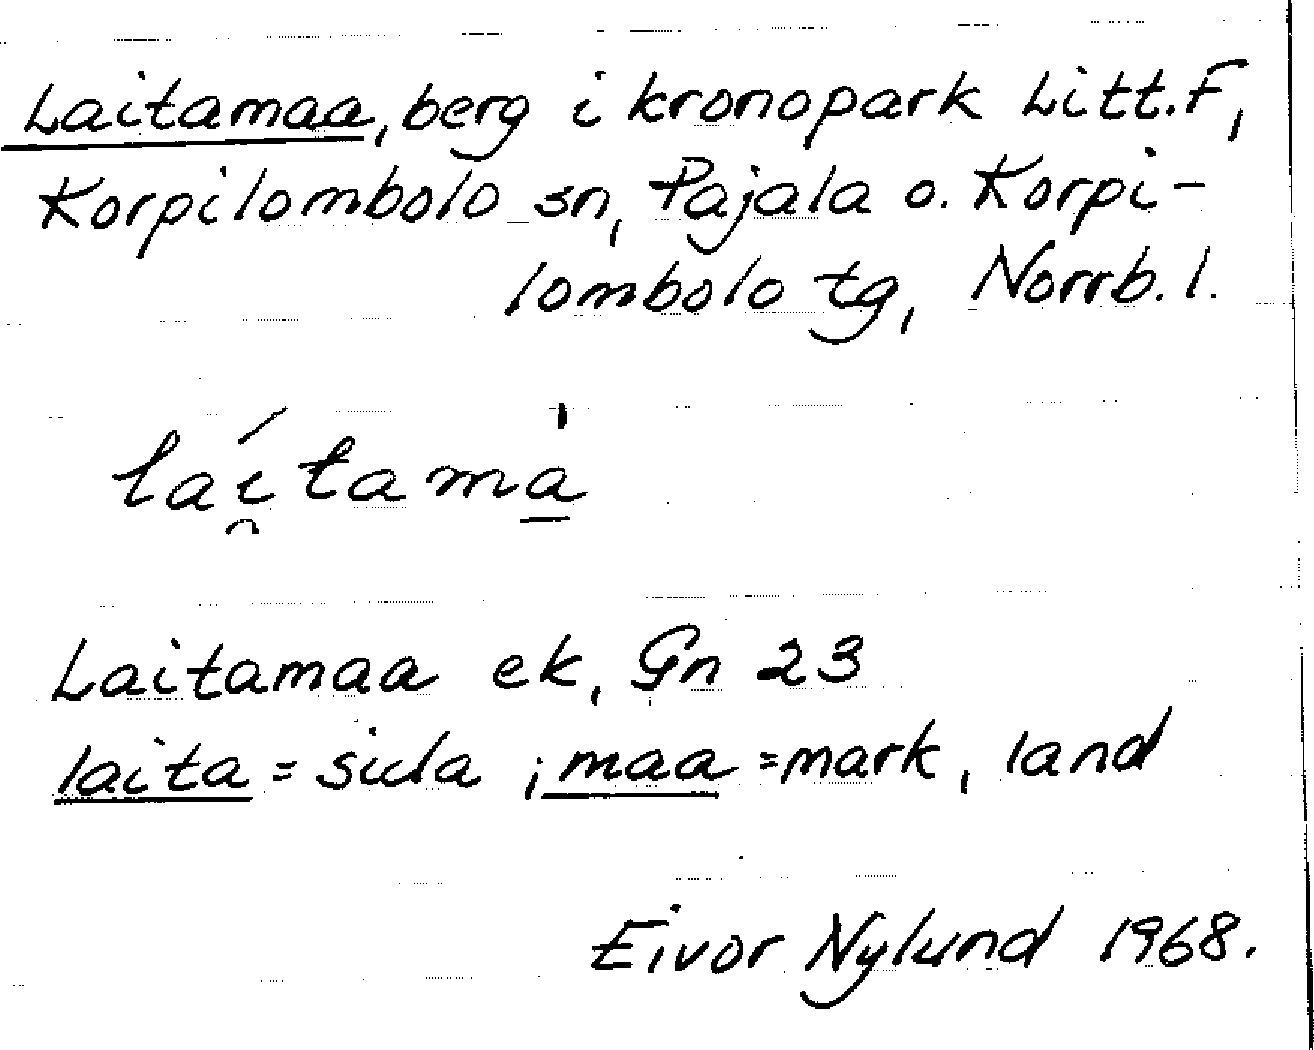 Laitamaa, berg i kronopark Litt. F,
Korpilombolo sn, Pajala o. Korpi-
lombolo tg, Norrb. l.
laí̯tama̱̍
Laitamaa ek, Gn 23
laita = sida ; maa = mark, land
Eivor Nylund 1968.